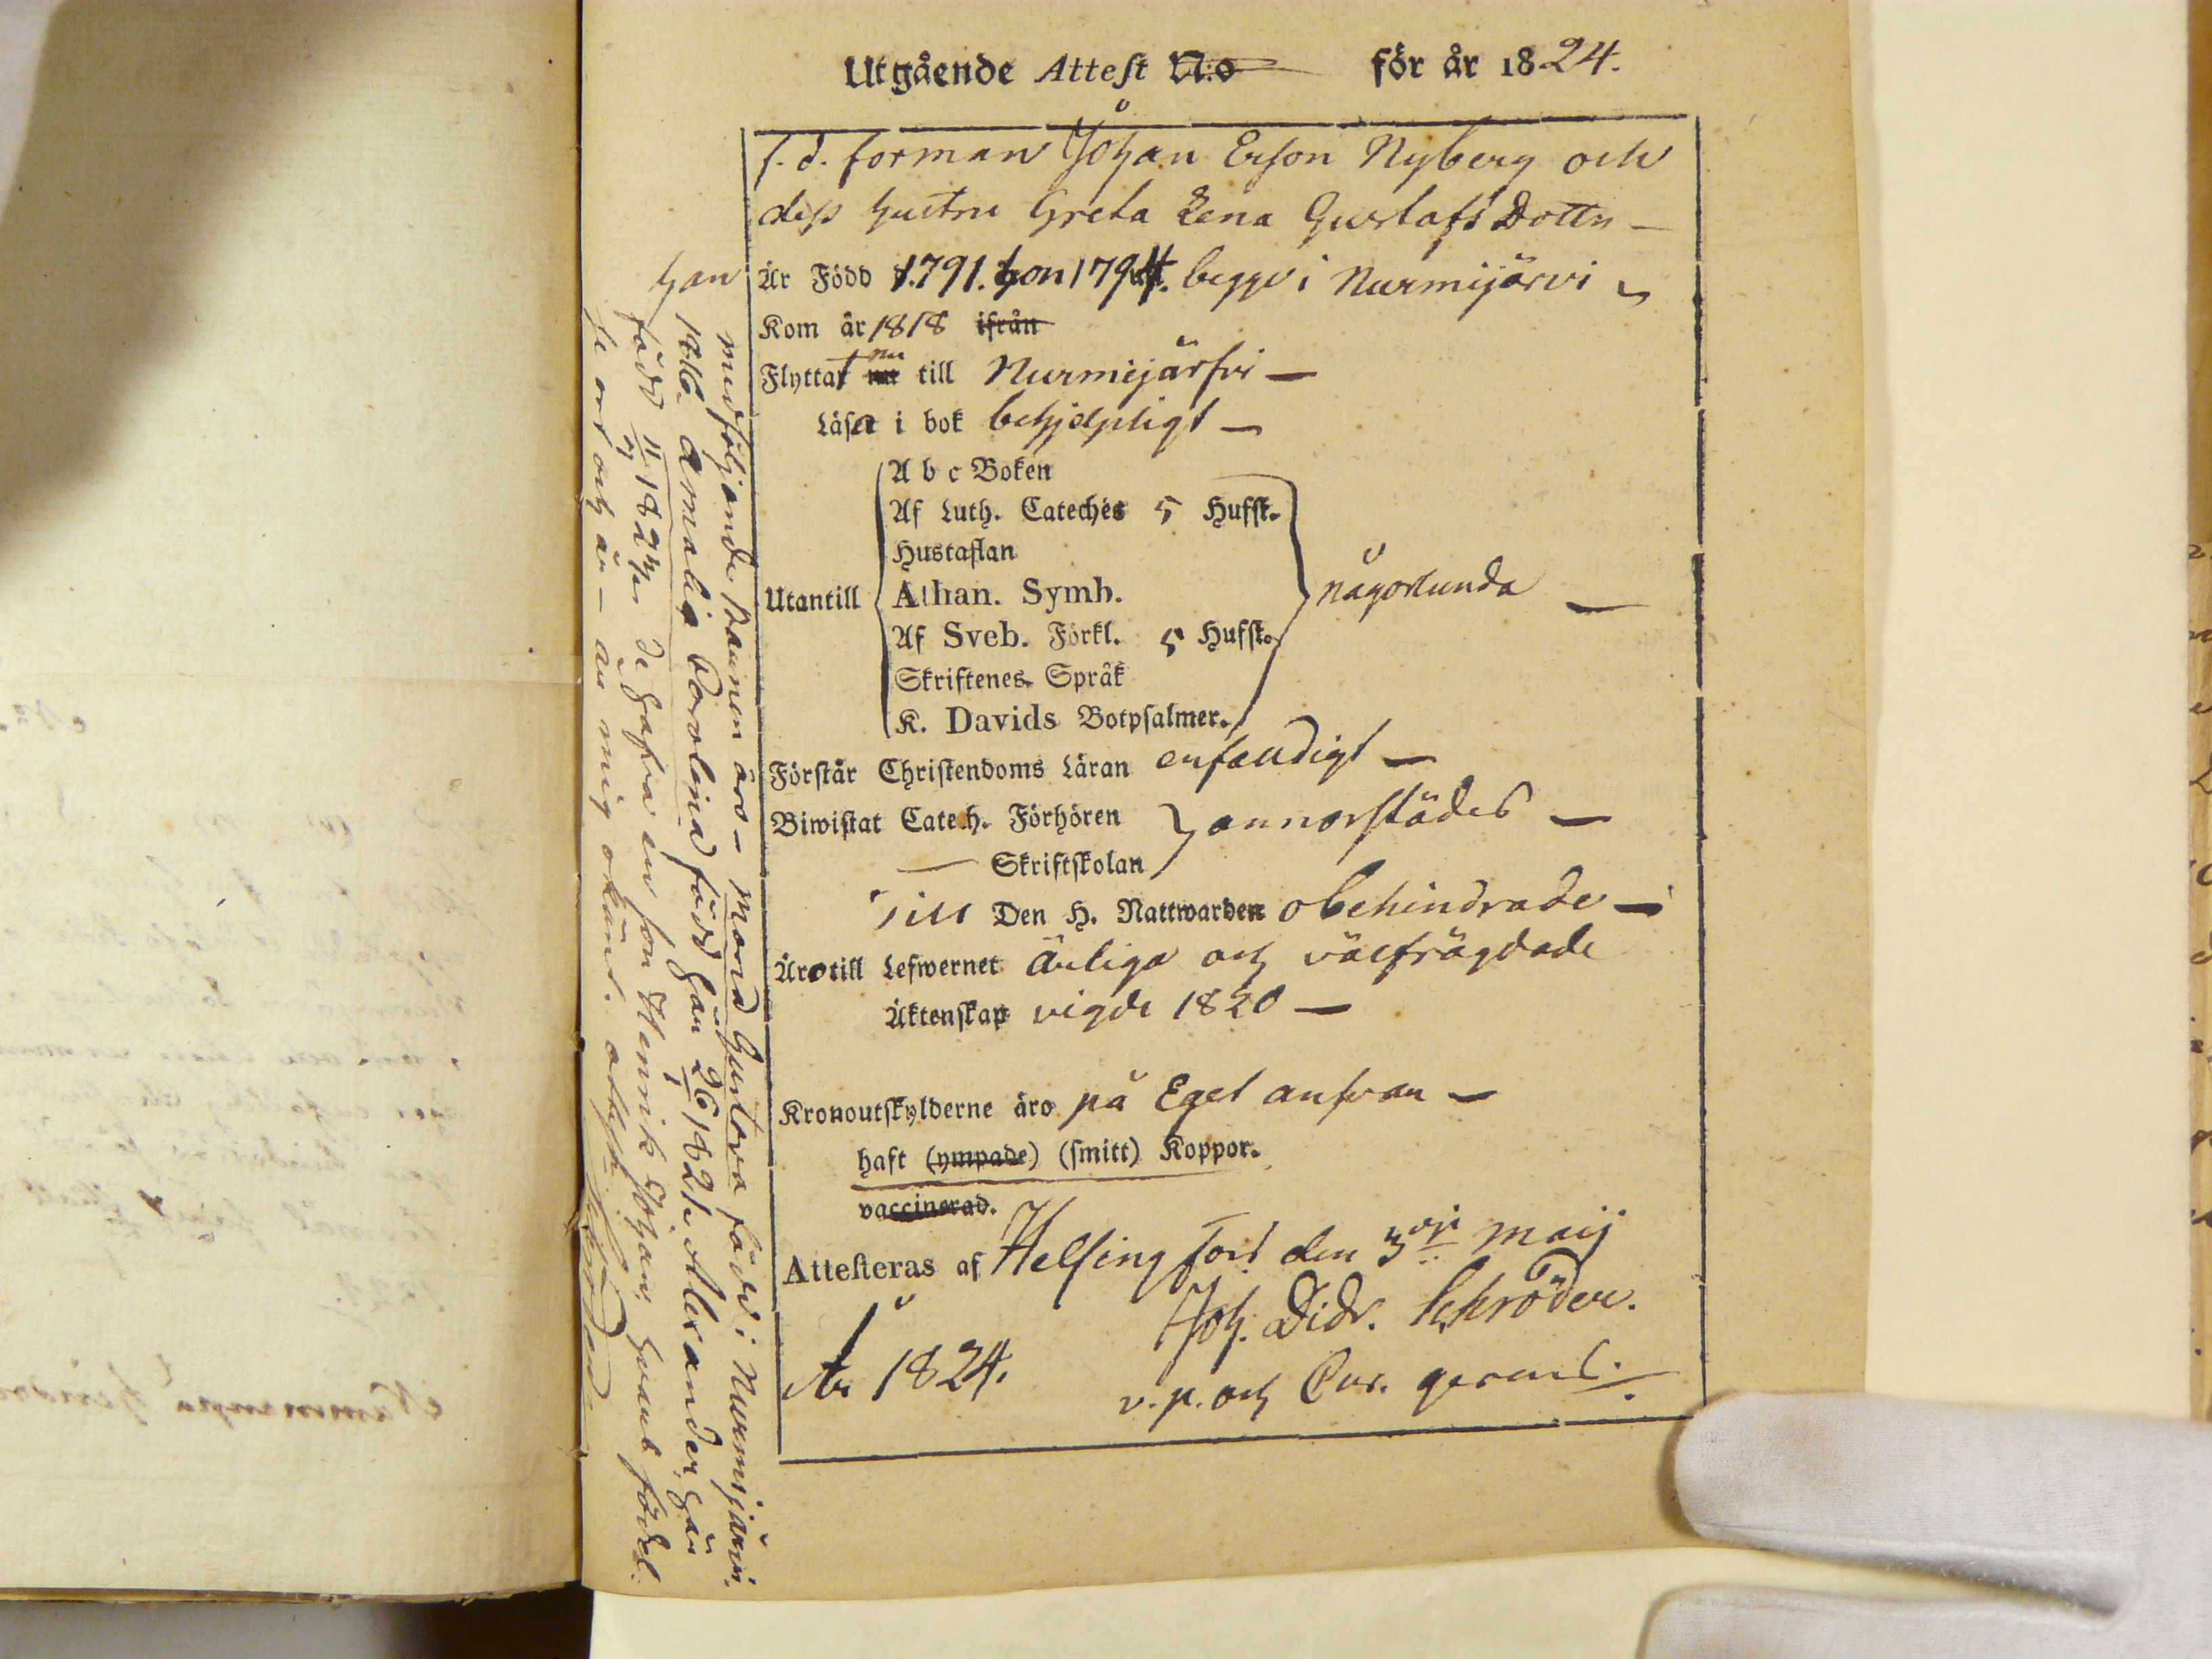 Utgående Attest N:o för år 1824.
f. d. forman Johan Erson Nyberg och
dess hustru Greta Lena Gustafs Dotter
han Är Född 1791. hon 1794. begge i Nurmijärvi
Kom år 1818 ifrån
Flyttat nu till Nurmijärfvi
Läser i bok behjelpligt
A b c Boken
Af Luth. Cateches 5 Hufst.
Hustaflan
Utantill Athan. Symb. någorlunda
Af Sveb. Förkl. 5 Hufst.
Skriftenes Språk
K. Davids Botpsalmer.
Förstår Christendoms Läran enfaldigt
Biwistat Catech. Förhören annorstädes
Skriftskolan
Till Den H. Nattwarden obehindrade
Äro till Lefwernet ärliga och välfrägdade
Äktenskap vigde 1820
Kronoutskylderne äro på Eget ansvar
haft (ympade) (smitt) Koppor.
vaccinerad.
Attesteras af Helsingfors den 3die Maij
År 1824. Joh. Didr. Schröder.
v. p. och Cur. gerens.
medföljande Barnen äro Maria Gustava född i Nurmijärvi
1816. Amalia Carolina född här 26/1 1821. Alexander här
född 11/7 1822. de hafva en son Henrik Johan, hvars födel-
se ort och år är mig okänd.